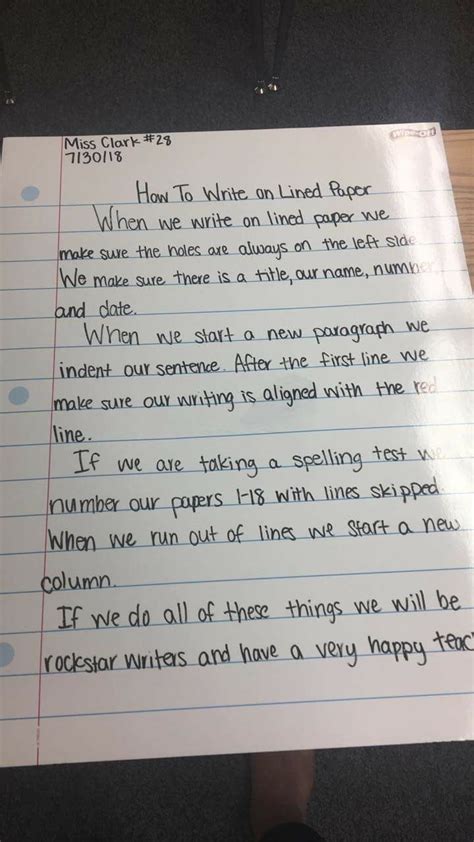 Miss Clark #28
7/30/18
Wipe-Off
How To Write on Lined Paper
When we write on lined paper we
make sure the holes are always on the left side.
We make sure there is a title, our name, number
and date.
When we start a new paragraph we
indent our sentence. After the first line we
make sure our writing is aligned with the red
line.
If we are taking a spelling test we
number our papers 1-18 with lines skipped.
When we run out of lines we start a new
column.
If we do all of these things we will be
rockstar writers and have a very happy teac